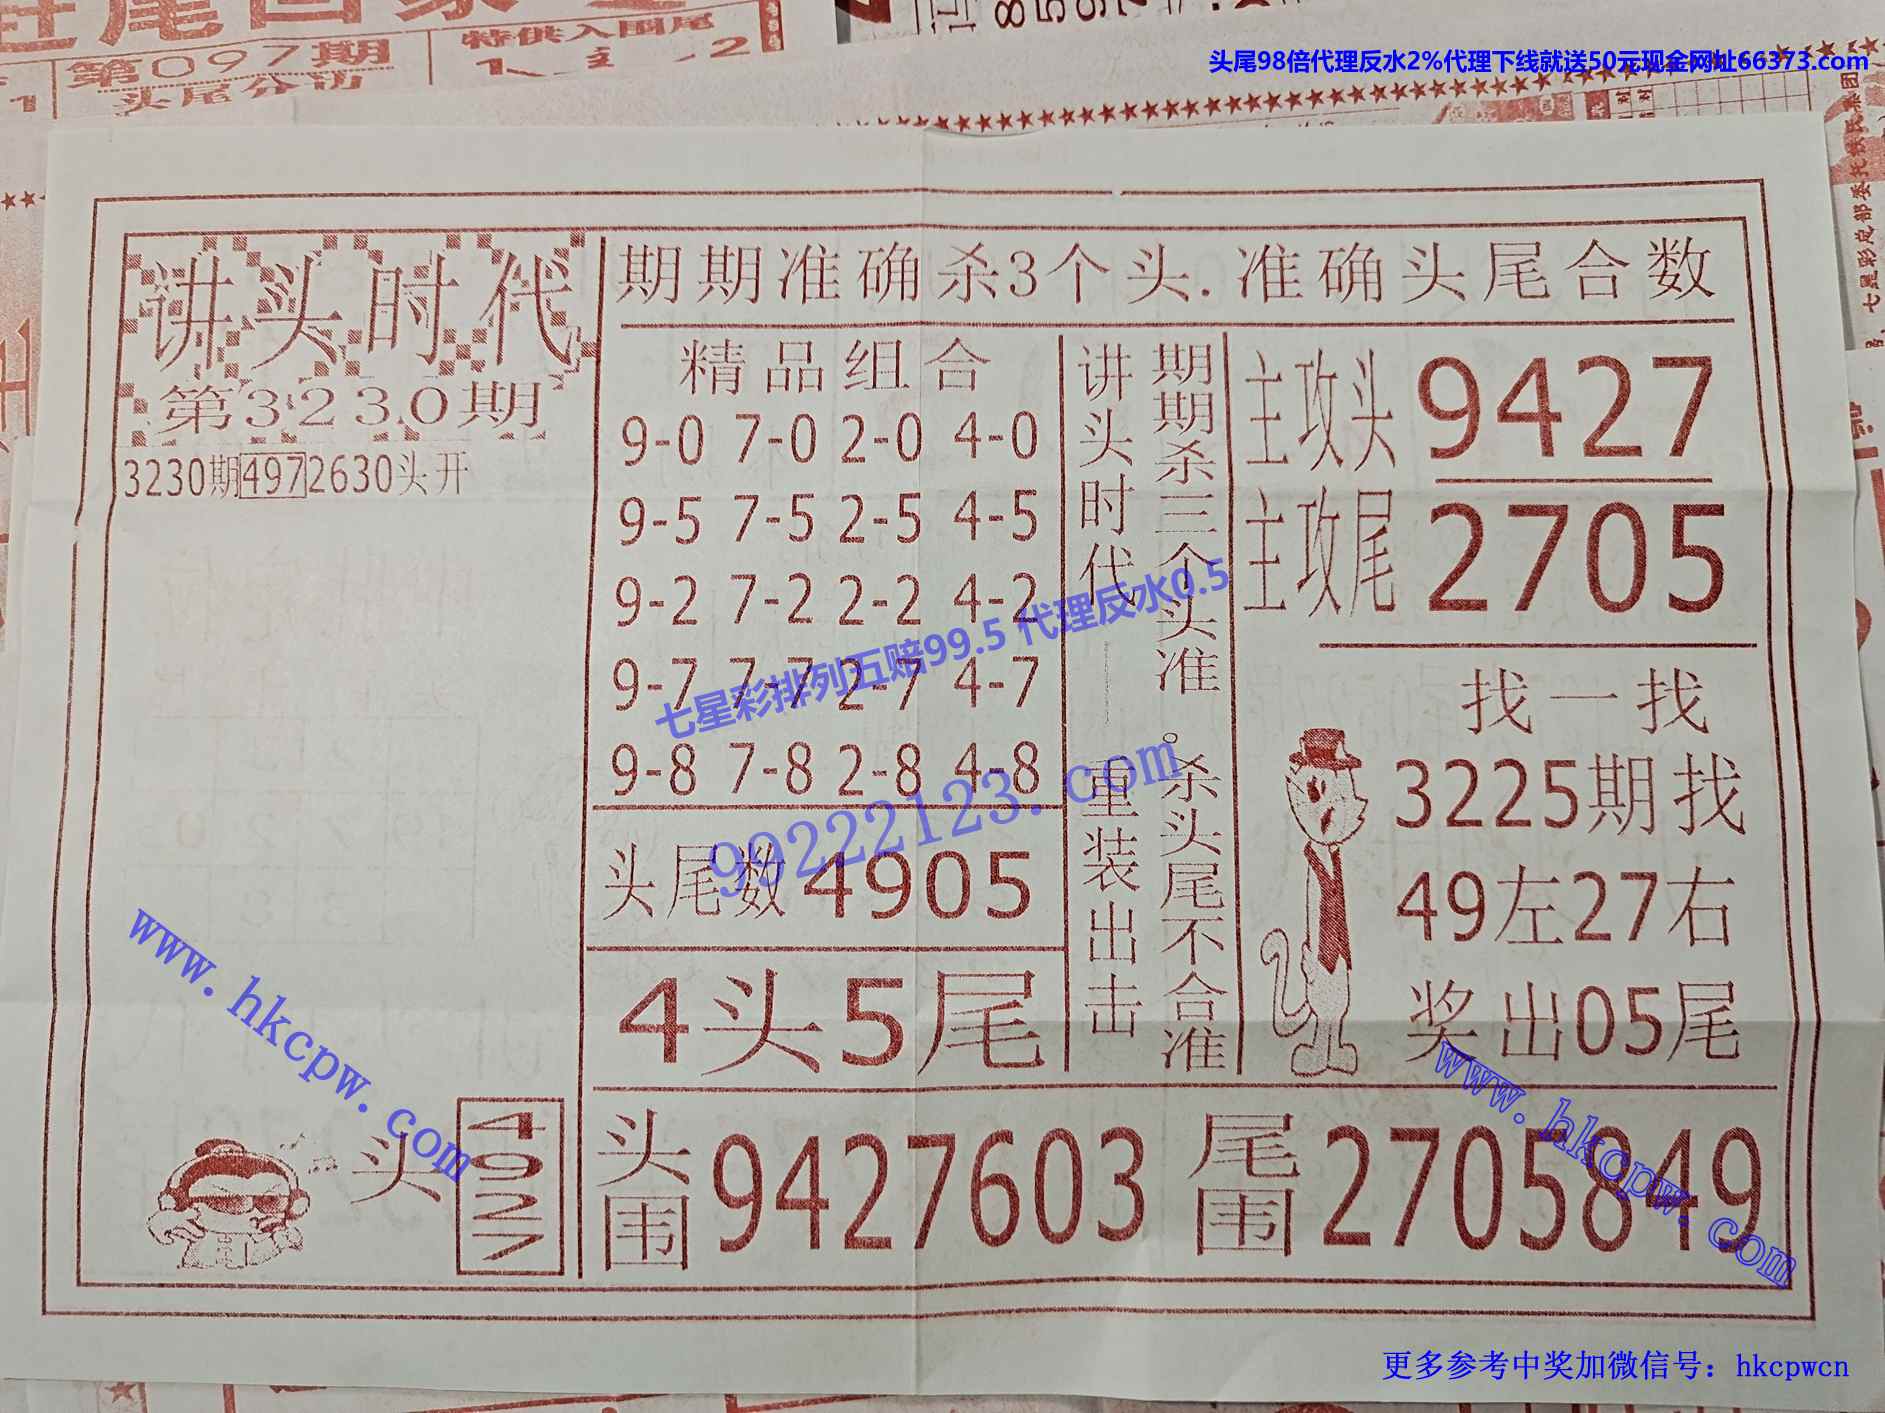 第097期
头尾分边
特供入围尾
头尾98倍代理反水2%代理下线就送50元现金网址66373.com
七星彩总部委托铁民集团
讲头时代
第3230期
3230期4972630头开
期期准确杀3个头.准确头尾合数
精品组合
9-0 7-0 2-0 4-0
9-5 7-5 2-5 4-5
9-2 7-2 2-2 4-2
9-7 7-7 2-7 4-7
9-8 7-8 2-8 4-8
头尾数4905
4头5尾
期期杀三个头准。杀头尾不合准
讲头时代——重装出击
主攻头9427
主攻尾2705
找一找
3225期找
49左27右
奖出05尾
头4927
头围9427603
尾围2705849
七星彩排列五赔99.5 代理反水0.5
99222123.com
www.hkcpw.com
www.hkcpw.com
更多参考中奖加微信号：hkcpwcn